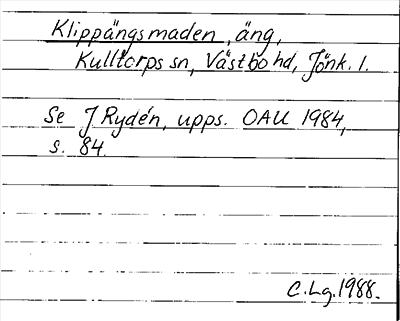 Klippängsmaden, äng,
Kulltorps sn, Västbo hd, Jönk. l.
Se J Rydén, upps. OAU 1984,
s. 84.
C.Lg.1988.